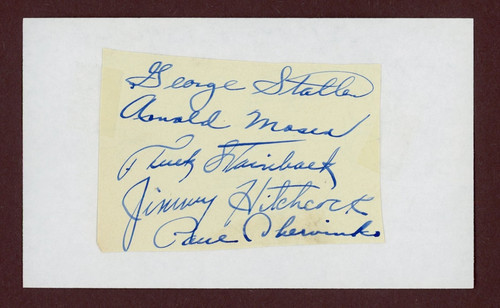 George Staller
Arnold Moser
Tuck Stainback
Jimmy Hitchcock
Paul Chervinko